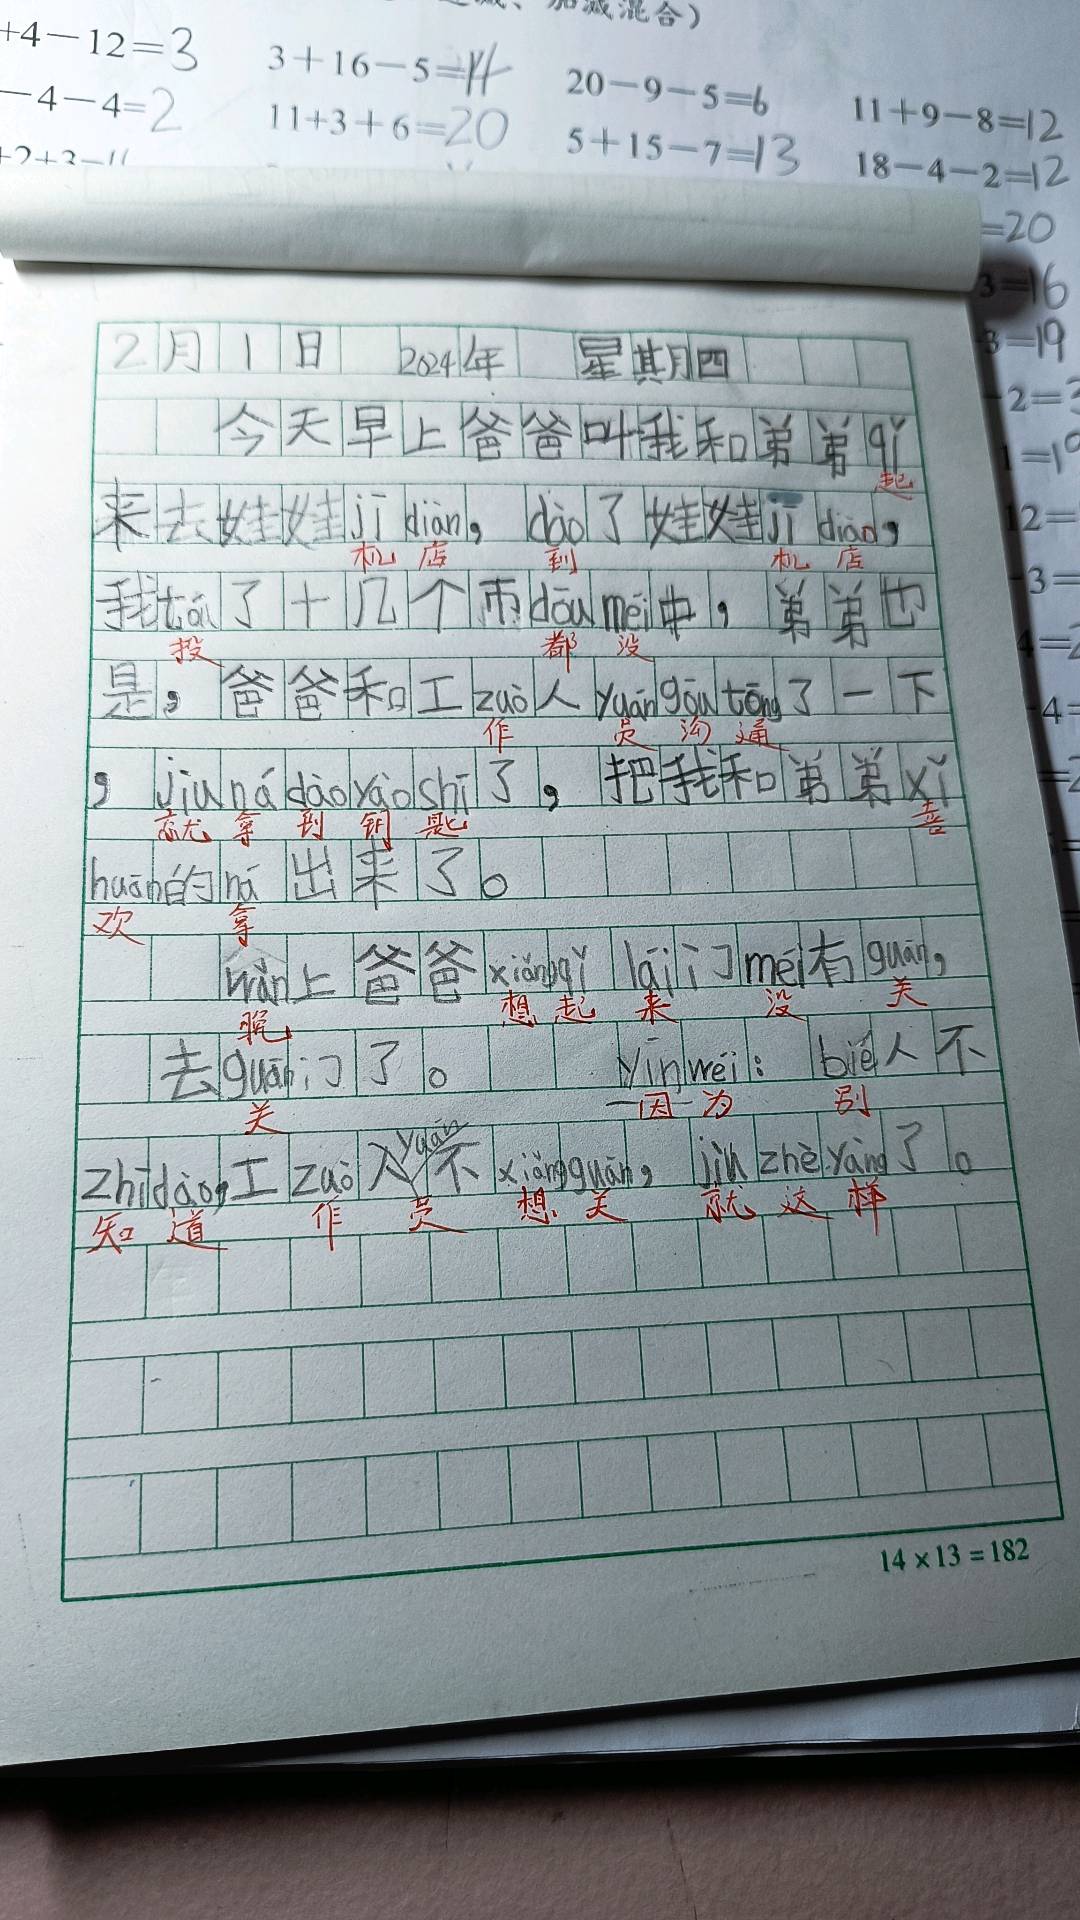 加减混合）
+4－12=3
3+16－5=14
20－9－5=6
11+9－8=12
－4－4=2
11+3+6=20
5+15－7=13
18－4－2=12
=20
3=16
3=19
2月1日 2024年 星期四
今天早上爸爸叫我和弟弟qǐ
起
来去娃娃jī diàn，dào了娃娃jī diàn，
机 店 到 机 店
我tóu了十几个币dōu méi中，弟弟也
投 都 没
是，爸爸和工zuò人yuán gōu tōng了一下
作 员 沟 通
，jiù ná dào yào shi了，把我和弟弟xǐ
就 拿 到 钥 匙 喜
huān的ná出来了。
欢 拿
wǎn上爸爸xiǎng qǐ lái门méi有guān，
晚 想 起 来 没 关
去guān门了。 yīn wéi：bié人不
关 因 为 别
zhī dào，工zuò人yuán不xiǎng guān，jiù zhè yàng了。
知 道 作 员 想 关 就 这 样
14×13=182